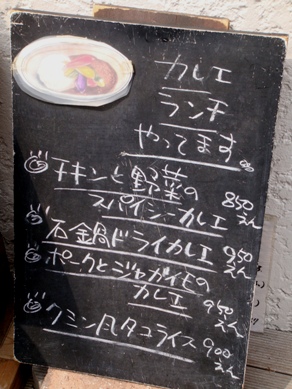 カレエ
ランチ
やってます
チキンと野菜の
スパイシーカレエ 850えん
石鍋ドライカレエ 950えん
ポークとジャガイモの
カレエ 950えん
クミン風タコライス 900えん